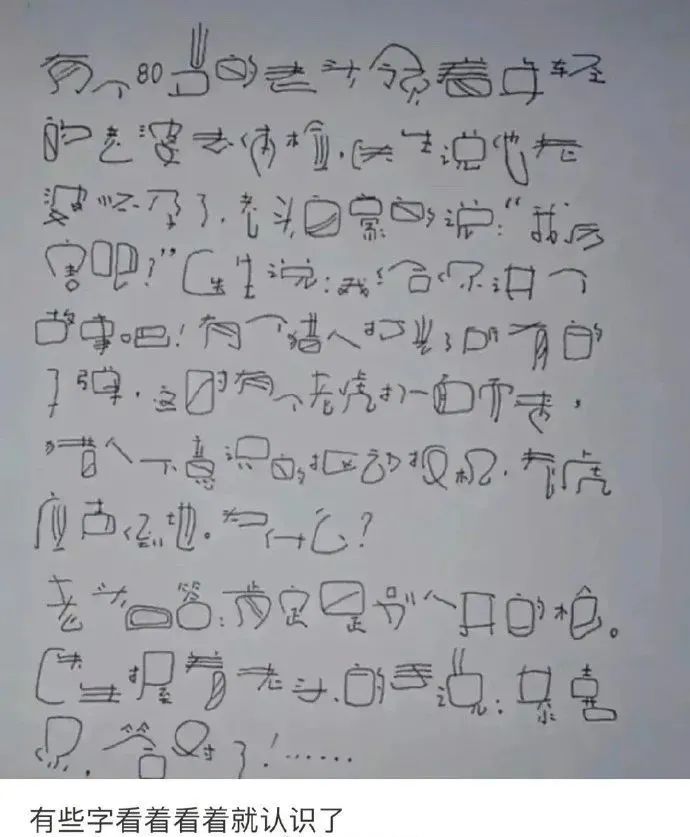 有个80岁的老头领着年轻
的老婆去体检,医生说他老
婆怀孕了,老头自豪的说:“我厉
害吧?”医生说:我给你讲个
故事吧!有一个猎人打光了所有的
子弹,这时有个老虎扑面而来,
猎人下意识的抠动扳机,老虎
应声倒地。为什么?
老头回答:肯定是别人开的枪。
医生握着老头的手说:果真
是,答对了!……
有些字看着看着就认识了